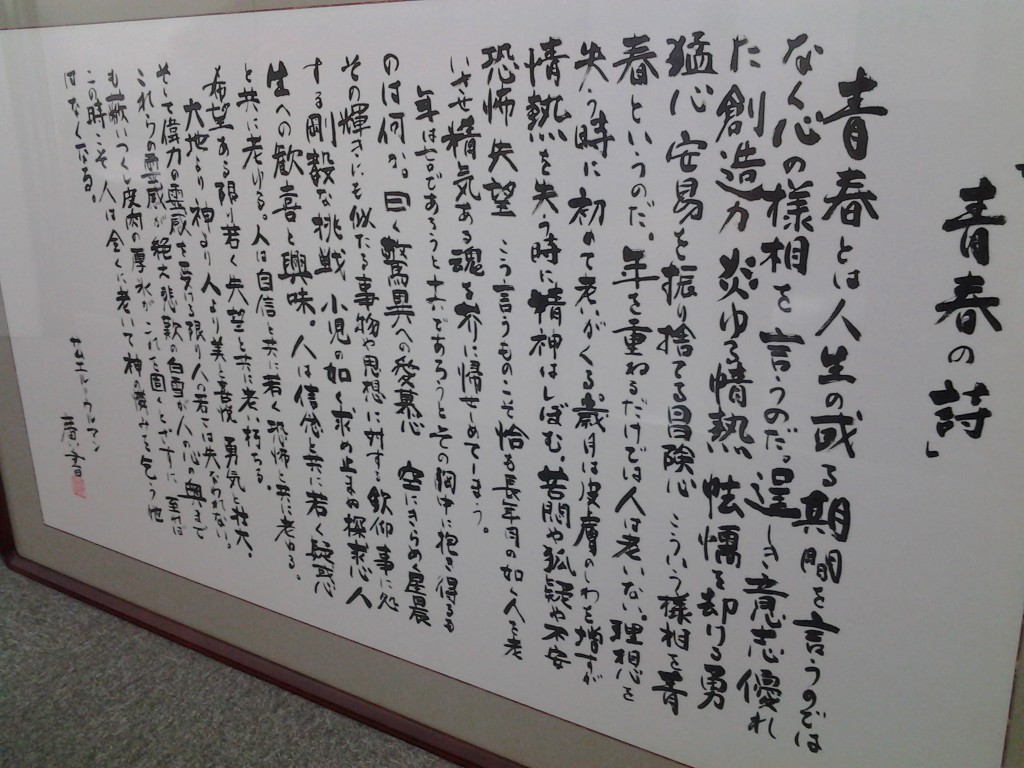 「青春の詩」
青春とは人生の或る期間を言うのでは
なく心の様相を言うのだ。逞しき意志優れ
た創造力炎ゆる情熱 怯懦を却ける勇
猛心 安易を振り捨てる冒険心 こういう様相を青
春というのだ。年を重ねるだけでは人は老いない。理想を
失う時に初めて老いがくる。歳月は皮膚のしわを増すが
情熱を失う時に精神はしぼむ。苦悶や狐疑や不安
恐怖 失望 こう言うものこそ恰も長年月の如く人を老
いさせ精気ある魂を芥に帰せしめてしまう。
年は七十であろうと十六であろうとその胸中に抱き得るも
のは何か。曰く驚異への愛慕心 空にきらめく星晨
その輝きにも似たる事物や思想に対する欽仰 事に処
する剛毅な挑戦 小児の如く求め止まぬ探求心 人
生への歓喜と興味。人は信念と共に若く 疑惑
と共に老ゆる。人は自信と共に若く恐怖と共に老ゆる。
希望ある限り若く失望と共に老い朽ちる。
大地より神より人より美と喜悦 勇気と壮大
そして偉力の霊感を受ける限り人の若さは失なわれない。
これらの霊感が絶え 悲歎の白雪が人の心の奥まで
も蔽いつくし皮肉の厚氷がこれを固くとざすに至れば
この時こそ人は全くに老いて神の憐みを乞う他
はなくなる。
サムエル・ウルマン